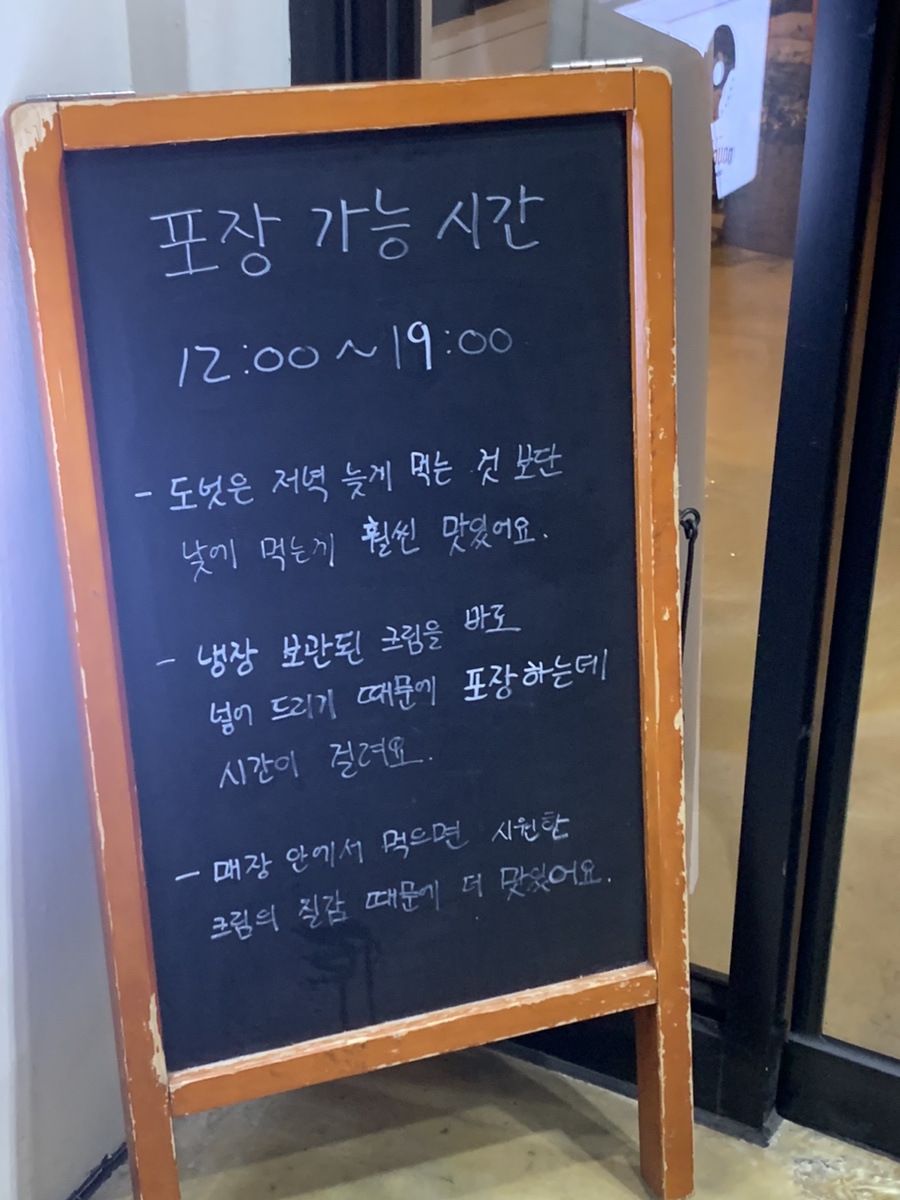 포장 가능 시간
12:00 ~ 19:00
- 도넛은 저녁 늦게 먹는 것 보단
낮에 먹는게 훨씬 맛있어요.
- 냉장 보관된 크림을 바로
넣어 드리기 때문에 포장하는데
시간이 걸려요.
- 매장 안에서 먹으면 시원한
크림의 질감 때문에 더 맛있어요.